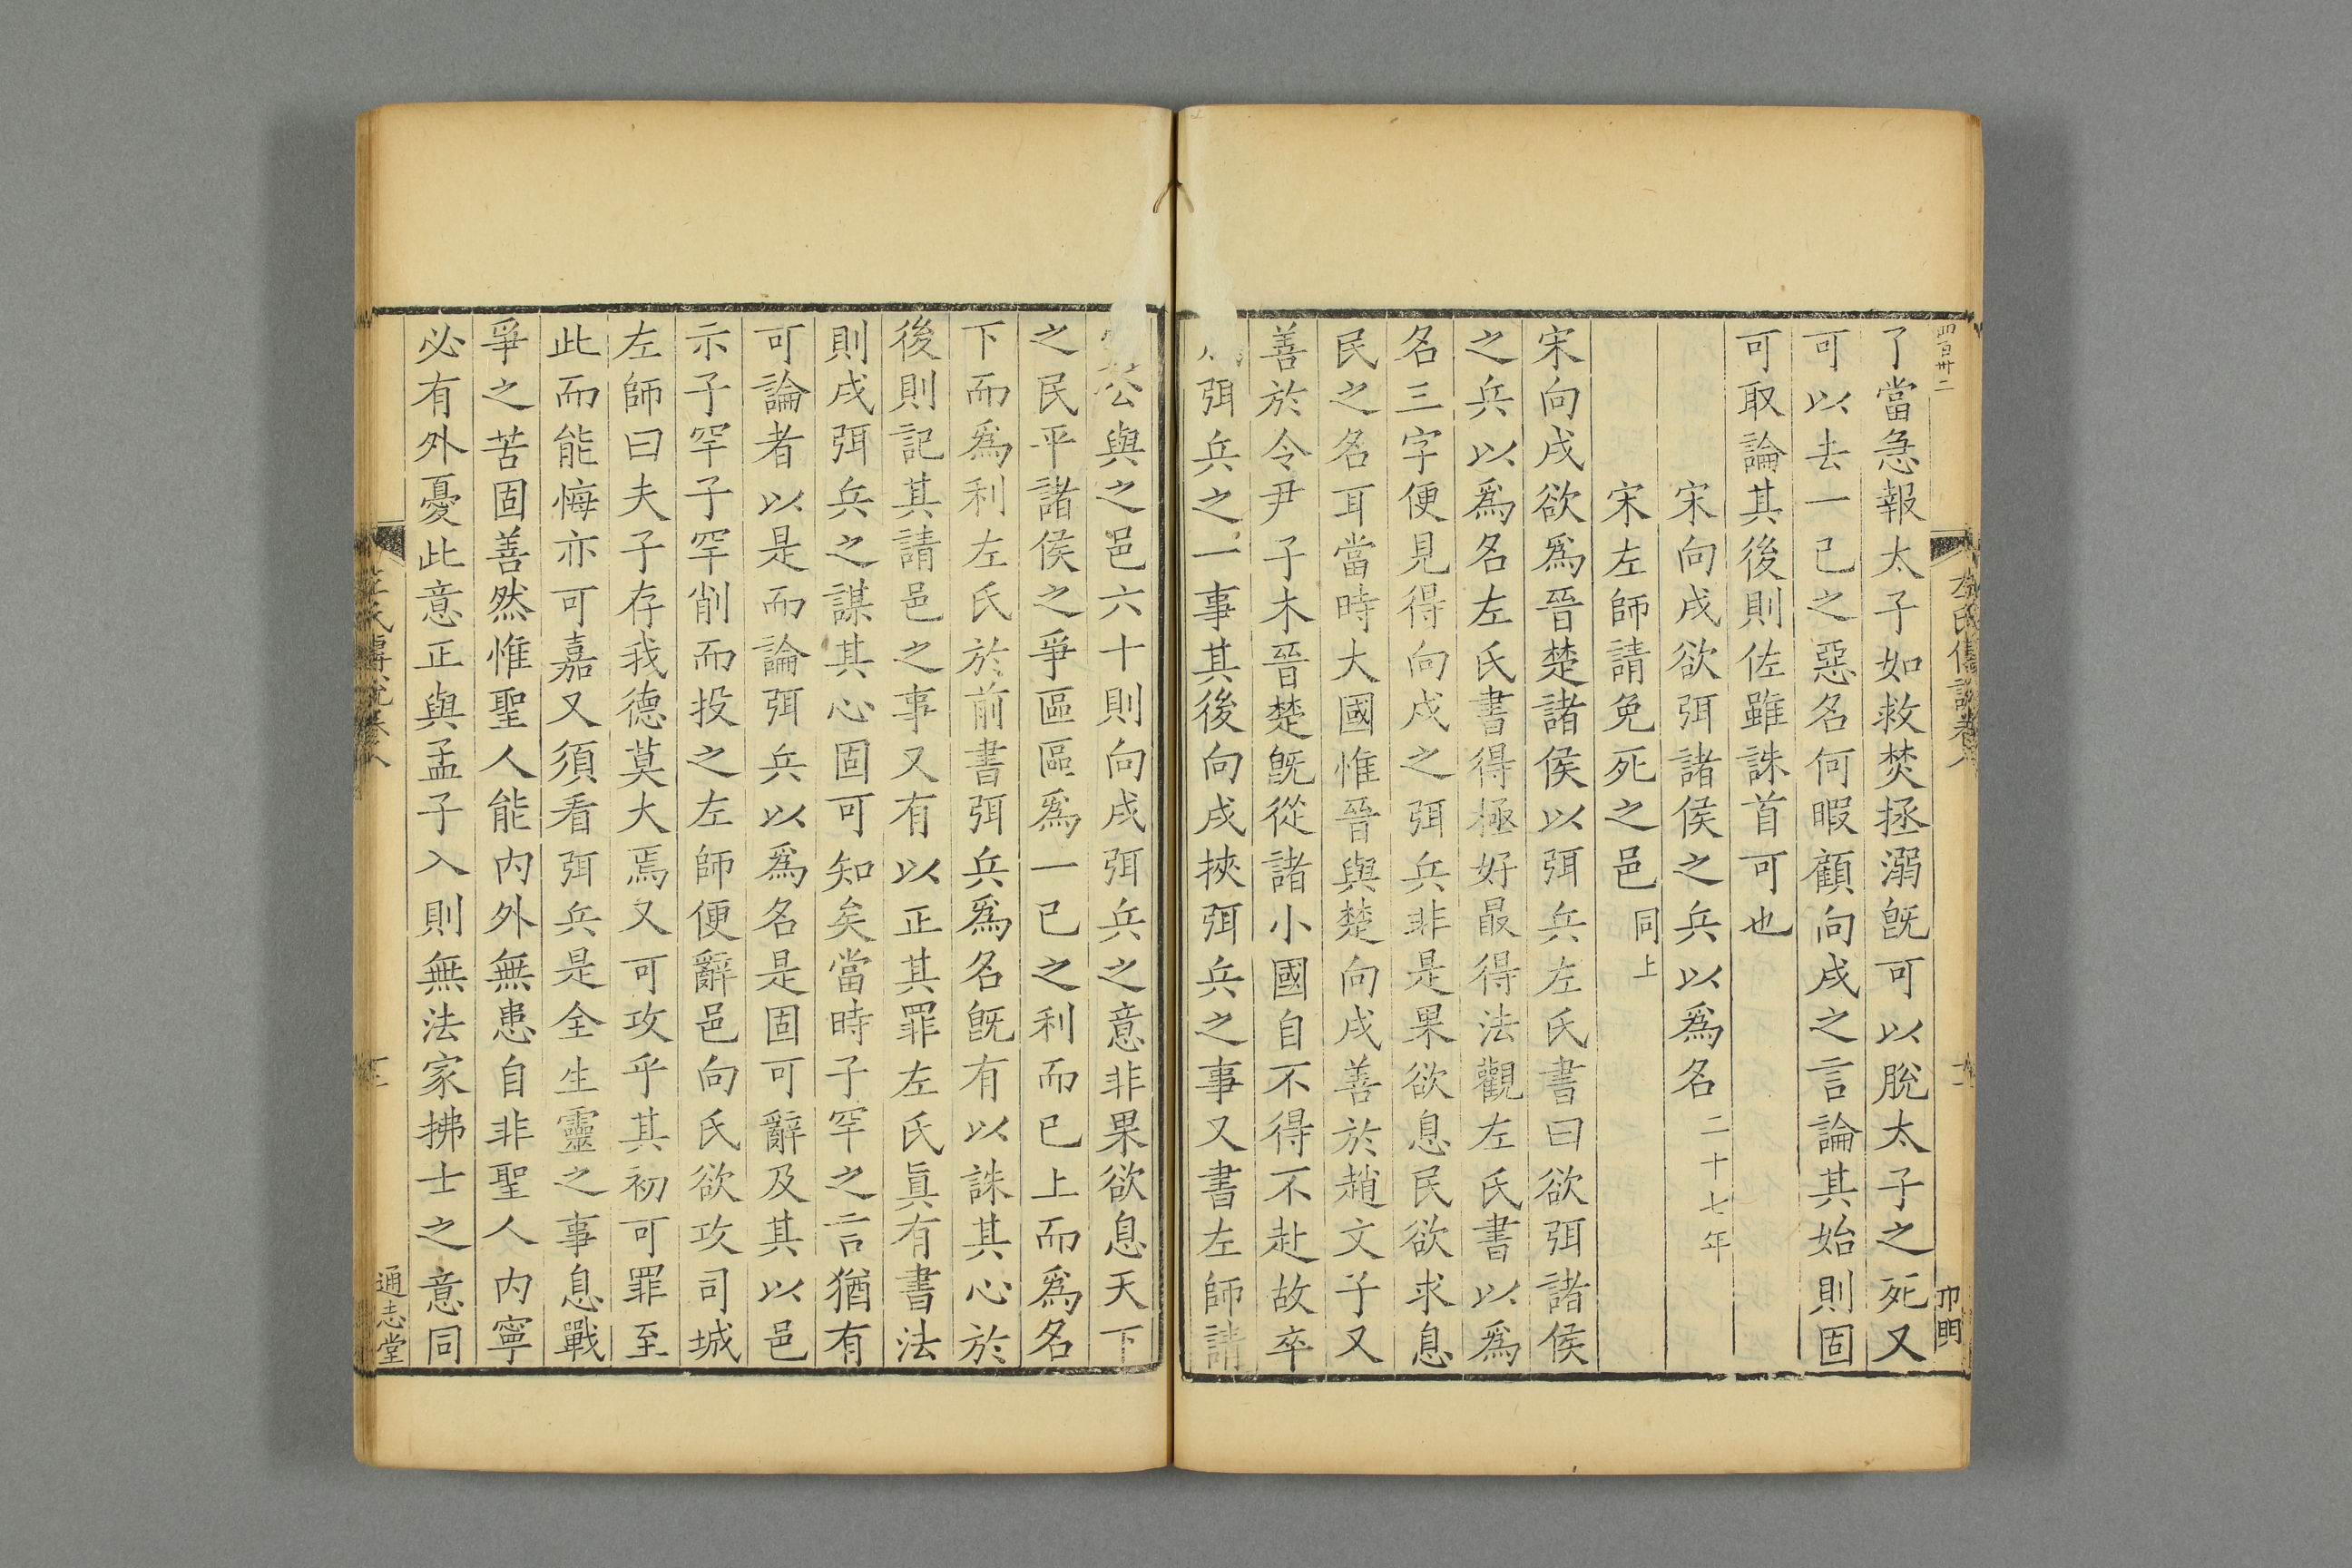 四百卅二
左氏傳說卷八
十二
卬明
了當急報太子如救焚拯溺旣可以脫太子之死又
可以去一已之惡名何暇顧向戌之言論其始則固
可取論其後則佐雖誅首可也
宋向戌欲弭諸侯之兵以爲名二十七年
宋左師請免死之邑同上
宋向戌欲爲晉楚諸侯以弭兵左氏書曰欲弭諸侯
之兵以爲名左氏書得極好最得法觀左氏書以爲
名三字便見得向戌之弭兵非是果欲息民欲求息
民之名耳當時大國惟晉與楚向戌善於趙文子又
善於令尹子木晉楚旣從諸小國自不得不赴故卒
弭兵之一事其後向戌挾弭兵之事又書左師請
公與之邑六十則向戌弭兵之意非果欲息天下
之民平諸侯之爭區區爲一已之利而已上而爲名
下而爲利左氏於前書弭兵爲名旣有以誅其心於
後則記其請邑之事又有以正其罪左氏眞有書法
則戌弭兵之謀其心固可知矣當時子罕之言猶有
可論者以是而論弭兵以爲名是固可辭及其以邑
示子罕子罕削而投之左師便辭邑向氏欲攻司城
左師曰夫子存我德莫大焉又可攻乎其初可罪至
此而能悔亦可嘉又須看弭兵是全生靈之事息戰
爭之苦固善然惟聖人能內外無患自非聖人內寧
必有外憂此意正與孟子入則無法家拂士之意同
左氏傳說卷八
通志堂